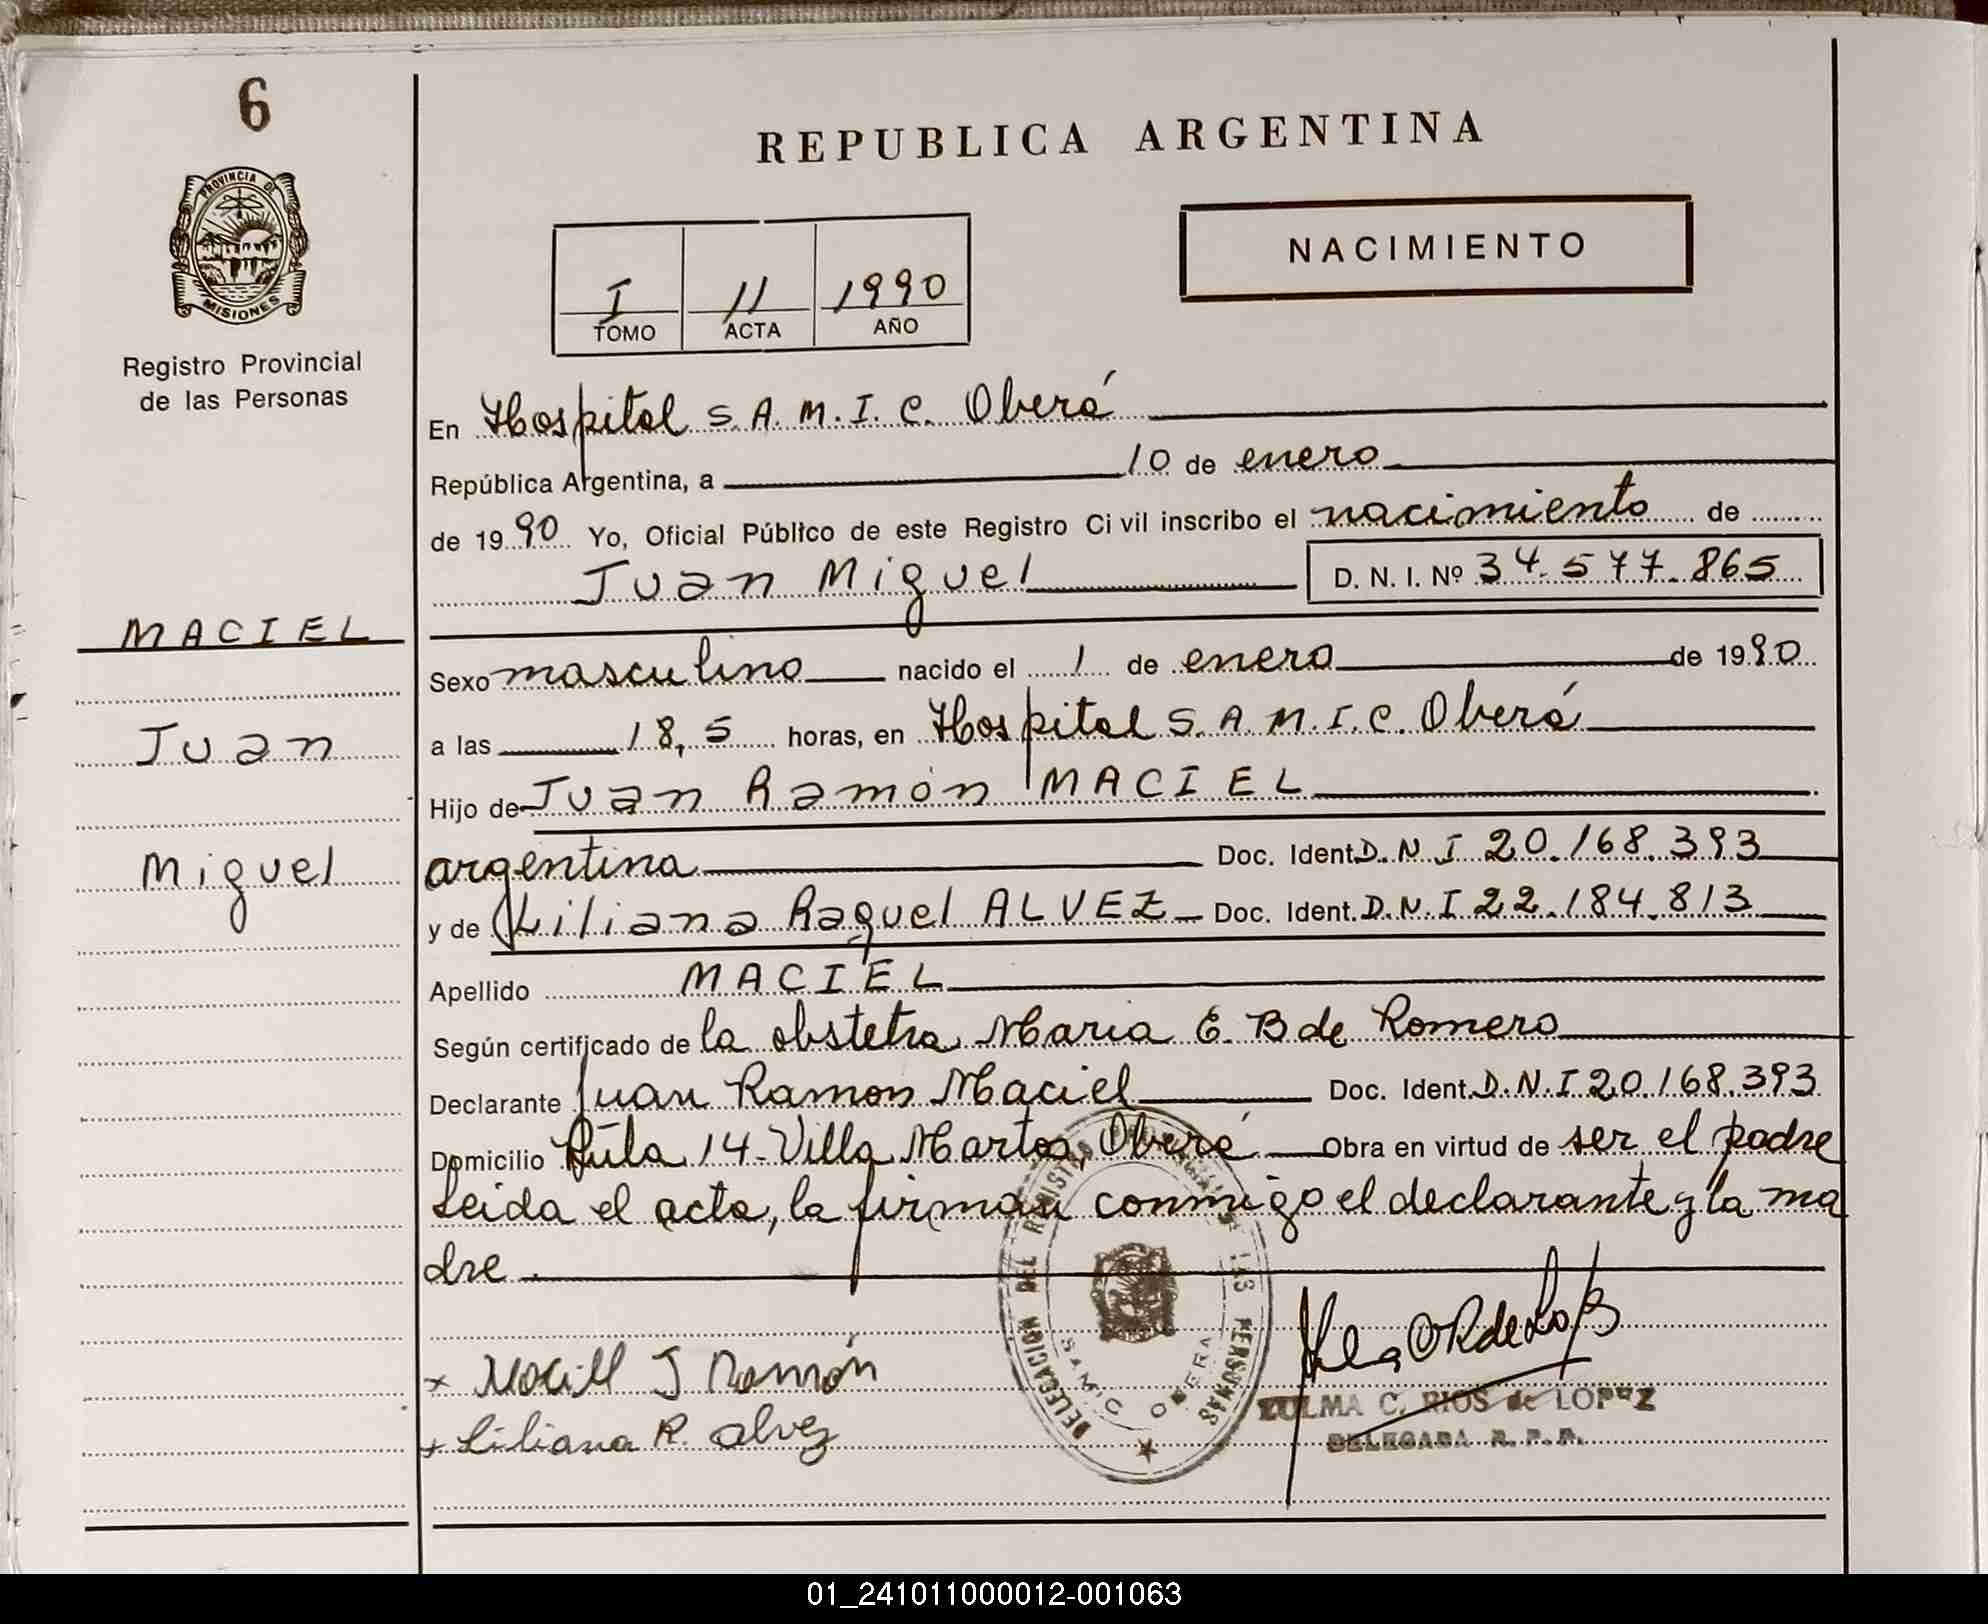 6
PROVINCIA DE
MISIONES
Registro Provincial
de las Personas
MACIEL
Juan
Miguel
REPUBLICA ARGENTINA
NACIMIENTO
I 11 1990
TOMO ACTA AÑO
En Hospital S.A.M.I.C. Oberá
República Argentina, a 10 de enero
de 1990 Yo, Oficial Público de este Registro Civil inscribo el nacimiento de
Juan Miguel D. N. I. Nº 34.577.865
Sexo masculino nacido el 1 de enero de 1990
a las 18,5 horas, en Hospital S.A.M.I.C. Oberá
Hijo de Juan Ramón MACIEL
argentina Doc. Ident. D.N.I 20.168.393
y de Liliana Raquel ALVEZ Doc. Ident. D.N.I 22.184.813
Apellido MACIEL
Según certificado de la obstetra Maria E. B de Romero
Declarante Juan Ramon Maciel Doc. Ident. D.N.I 20.168.393
Domicilio Ruta 14 - Villa Martos, Oberá Obra en virtud de ser el padre
Leida el acta, la firman conmigo el declarante y la ma
dre.
DELEGACION DEL REGISTRO PROVINCIAL DE LAS PERSONAS
SAMIC OBERA
x Maciel J Ramón
x Liliana R. alvez
ZULMA C. RIOS de LOPEZ
DELEGADA R. P. P.
01_241011000012-001063